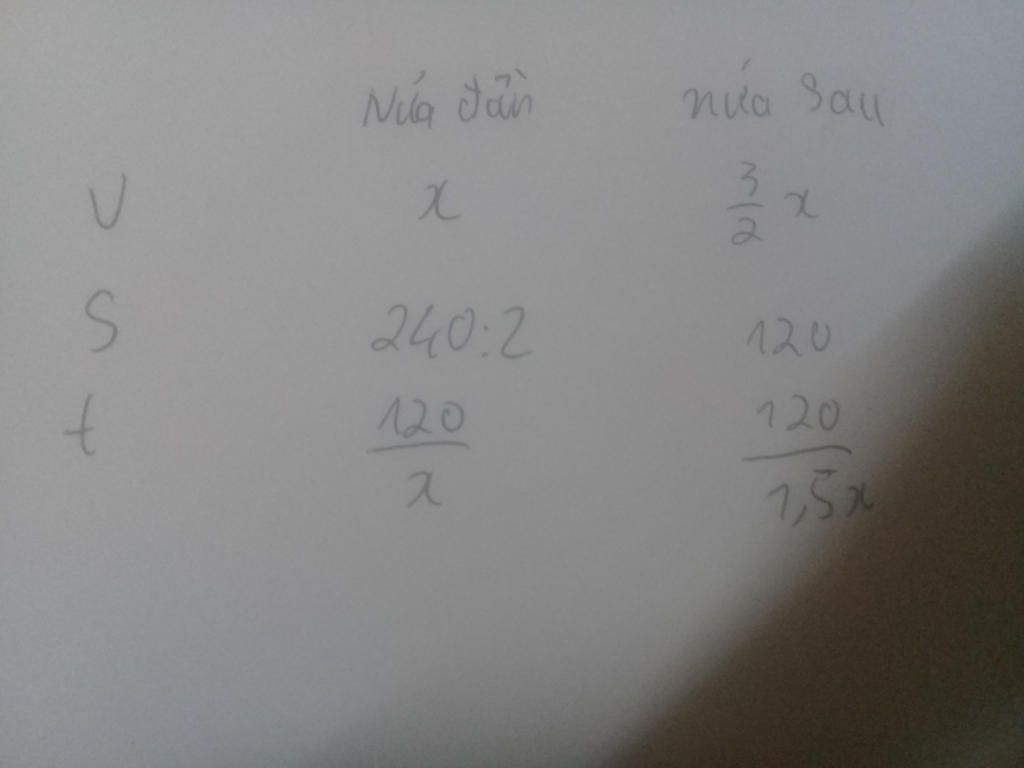 Nửa đần nửa sau
V x 3/2 x
S 240:2 120
t 120/x 120/1,5x